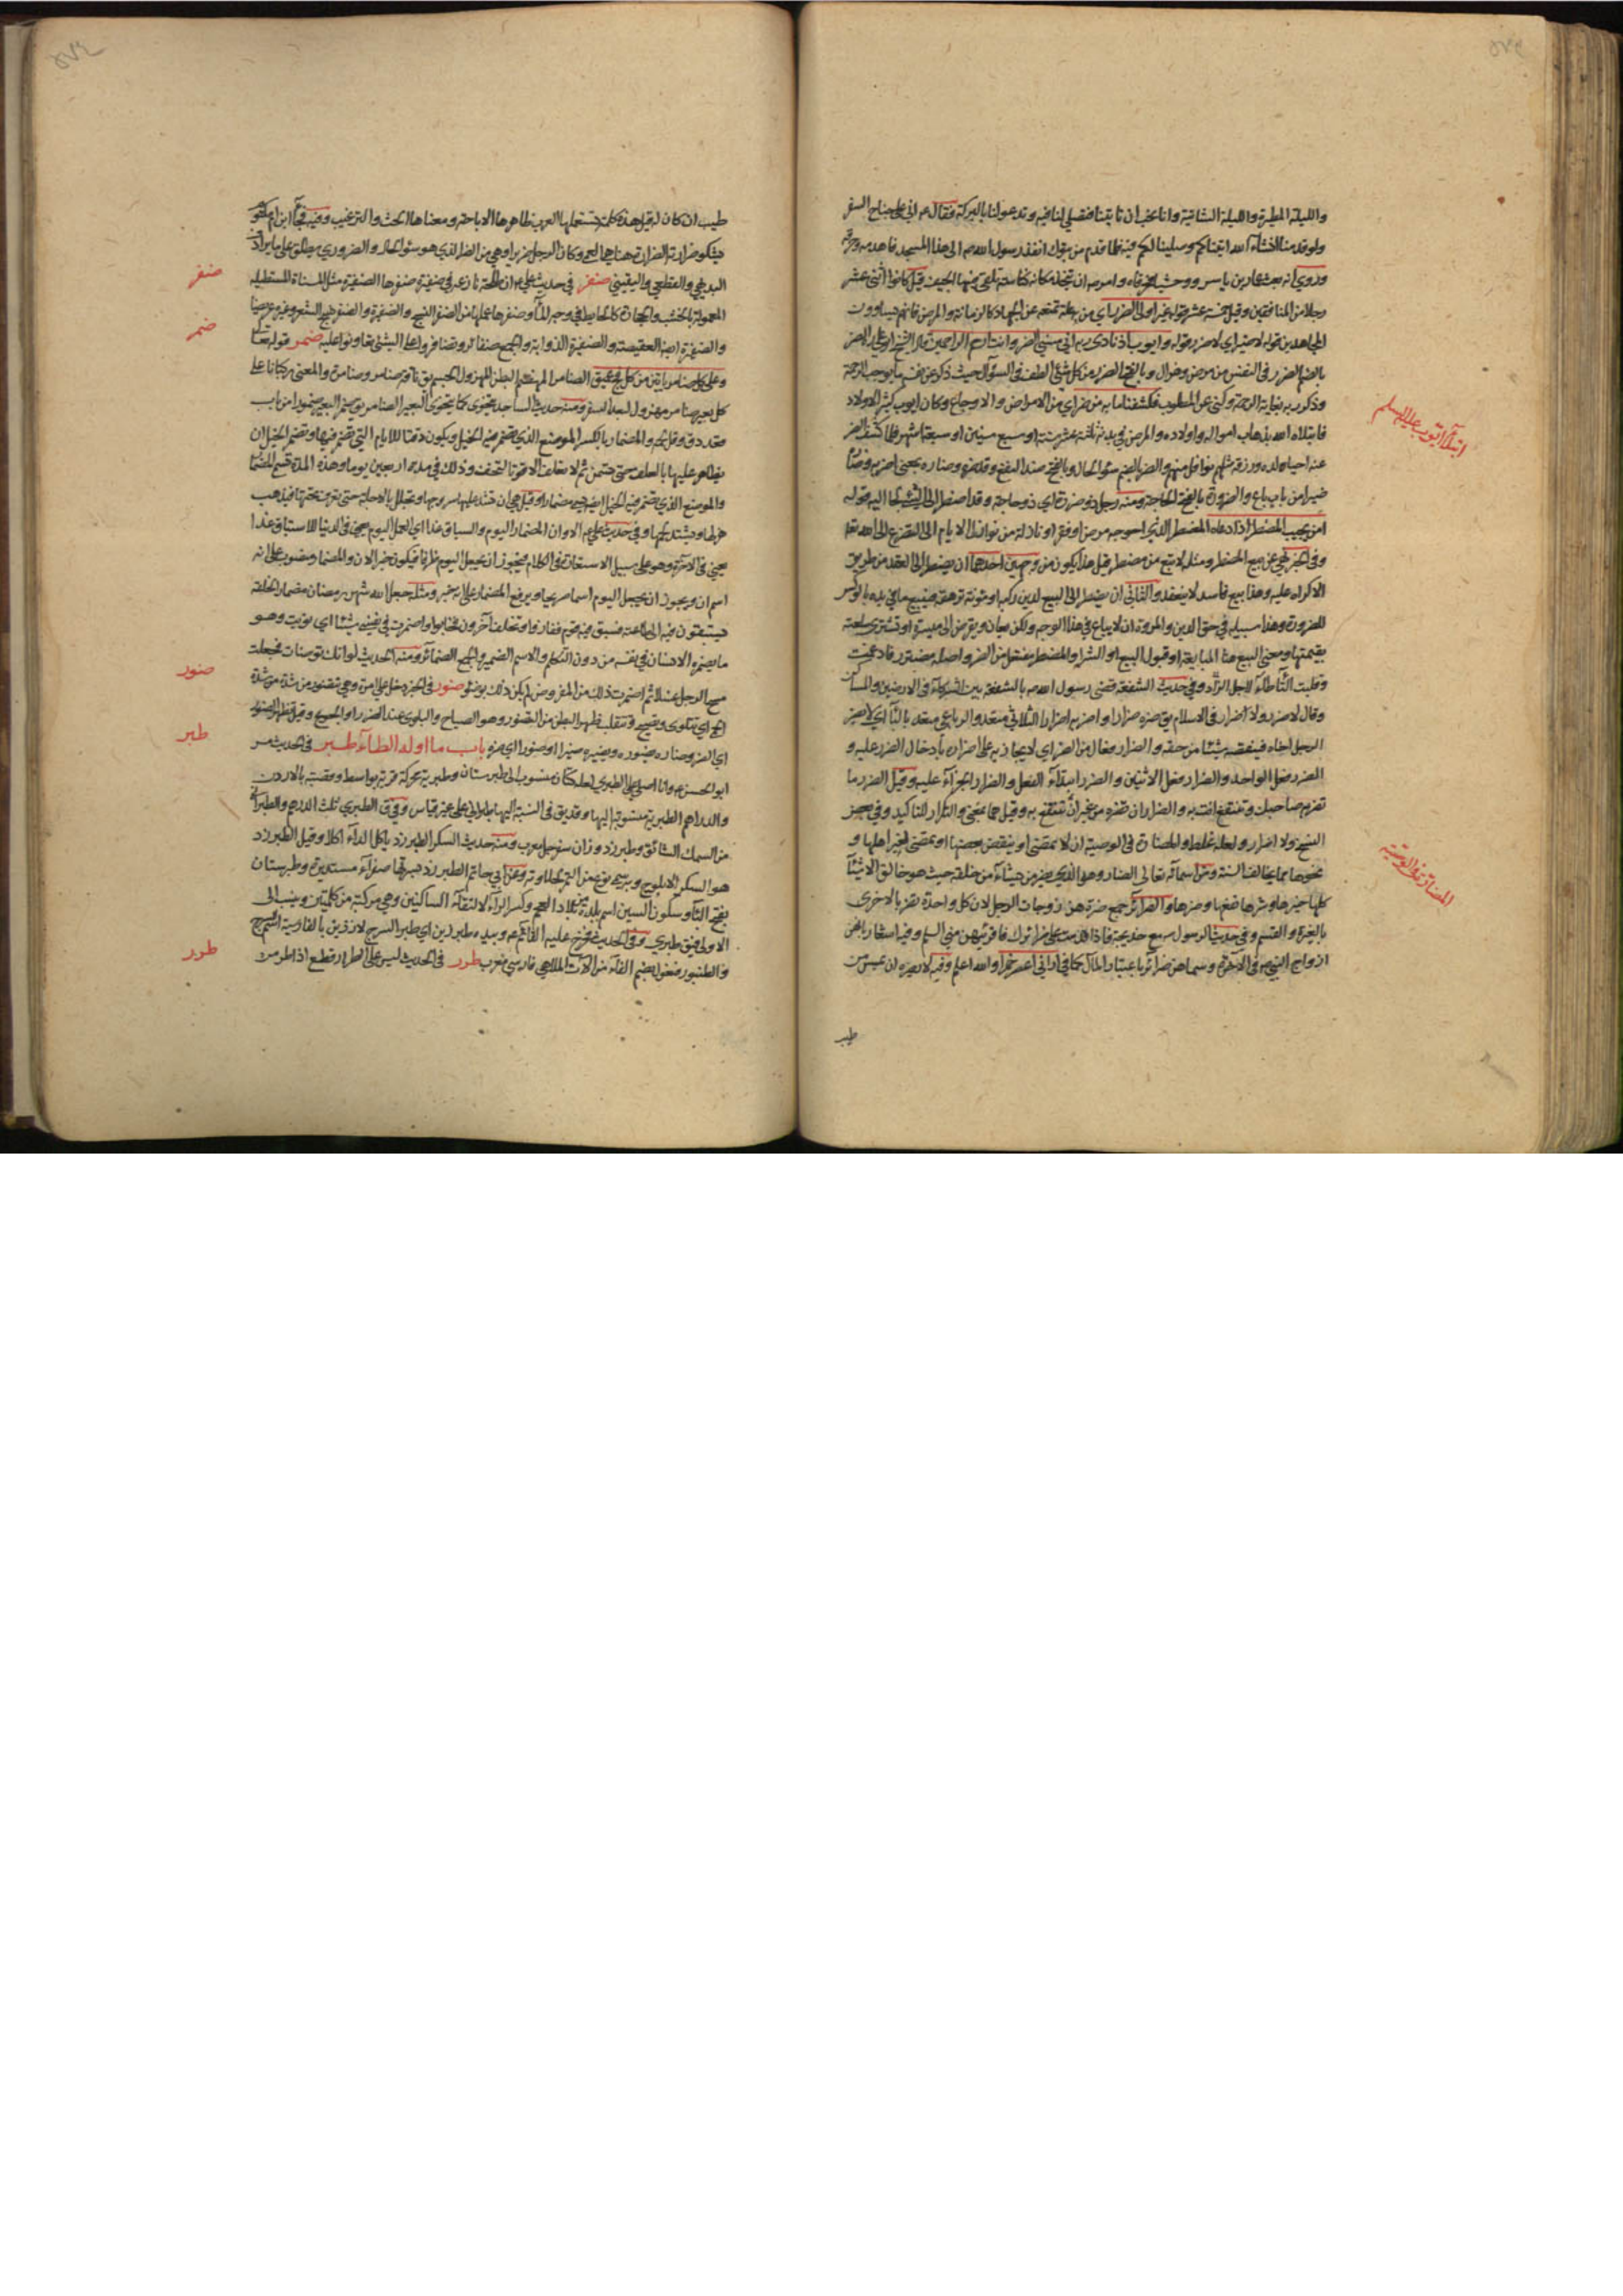 والليلة المطيرة والليلة الشاتية وانا نحب ان تأتينا فتصلي لنا فيه وتدعو لنا بالبركة فقال ص اني على جناح السفر
ولو قدمنا انشاء الله اتيناكم وصلينا لكم فيه فلما قدم من تبوك انفذ رسول الله ص الى هذا المسجد فاهدمه وحرقه
وروي انه بعث عمار بن ياسر ووحشيا فحرقاه وامر ص ان يتخذ مكانه كناسة تلقى فيها الجيف قيل كانوا اثنى عشر
رجلا من المنافقين وقيل خمسة عشر قوله غير اولى الضرر اي من به علة تمنعه عن الجهاد كالزمانة والمرض فانهم يساوون
المجاهدين قوله لا ضير اي لا ضرر قوله وايوب اذ نادى ربه اني مسني الضر وانت ارحم الراحمين قال الشيخ ابو علي الضر
بالضم الضرر في النفس من مرض وهزال وبالفتح الضرر من كل شئ الطف في السؤال حيث ذكر عن نفسه ما يوجب الرحمة
وذكر ربه بغاية الرحمة وكنى عن المطلوب فكشفنا ما به من ضر اي من الامراض والاوجاع وكان ايوب كثير الاولاد
فابتلاه الله بذهاب امواله واولاده والمرض في بدنه ثلثة عشر سنة او سبع سنين او سبعة اشهر فلما كشف الضر
عنه احيا ولده ورزقه مثلهم نوافل منهم والضر بالضم سوء الحال وبالفتح ضد النفع وقد ضره وضاره بمعنى اضر به وضاره
ضيرا من باب باع والضرورة بالفتح الحاجة ومنه رجل ذو ضرورة اي ذو حاجة وقد اضطر الى الشئ الجأ اليه قوله
امن يجيب المضطر اذا دعاه المضطر الذي احوجه مرض او فقر او نازلة من نوازل الايام الى التضرع الى الله تعا
وفي الخبر نهى عن بيع المضطر ومثله لا تبتع من مضطر قيل هذا يكون من وجهين احدهما ان يضطر الى العقد من طريق
الاكراه عليه وهذا بيع فاسد لا ينعقد والثاني ان يضطر الى البيع لدين ركبه او مؤنة ترهقه فيبيع ما في يده بالوكس
للضرورة وهذا سبيله في حق الدين والمروة ان لا يباع في هذا الوجه ولكن يعان ويقرض الى ميسرة او تشترى سلعته
بقيمتها ومعنى البيع هنا المبايعة او قبول البيع او الشرا والمضطر مفتعل من الضر واصله مضترر فادغمت
وقلبت التاء طاء لاجل الراء وفي حديث الشفعة قضى رسول الله ص بالشفعة بين الشركاء في الارضين والمساكن
وقال لا ضرر ولا اضرار في الاسلام يق ضره ضرارا واضر به اضرارا الثلاثي متعد والرباعي متعد بالباء اي لا يضر
الرجل اخاه فينقصه شيئا من حقه والضرار فعال من الضر اي لا يجازيه على اضراره بادخال الضرر عليه و
الضرر فعل الواحد والضرار فعل الاثنين والضرر ابتداء الفعل والضرار الجزاء عليه وقيل الضرر ما
تضر به صاحبك وتنتفع انت به والضرار ان تضره من غير ان تنتفع به وقيل هما بمعنى والتكرار للتاكيد وفي بعض
النسخ ولا اضرار ولعله غلط والمضارة في الوصية ان لا تمضى او ينقض بعضها او يمضى لغير اهلها و
نحوها مما يخالف السنة ومن اسمائه تعالى الضار وهو الذي يضر من يشاء من خلقه حيث هو خالق الاشياء
كلها خيرها وشرها نفعها وضرها والضرائر جمع ضرة هن زوجات الرجل لان كل واحدة تضر بالاخرى
بالغيرة والقسم وفي حديث الرسول مع خديجة فاذا قدمت على ضرائرك فاقرئيهن مني السلم وفيه اشعار بانهن
ازواج النبي ص في الآخرة وسماهن ضرائر باعتبار المآل كما في اراني اعصر خمرا والله اعلم وفيه لا يضره ان يمس من
ابتلاء ايوب عليه السلم
المضارة في الوصية
طيب
طيب ان كان له قيل هذه كلمة تستعملها العرب ظاهرها الاباحة ومعناها الحث والترغيب وفيه فجاء ابن ام مكتوم
يشكو ضرارته الضرارة هنا هي العمى وكان الرجل ضريرا وهي من الضر الذي هو سوء الحال والضروري يطلق على ما يرادف
البديهي والقطعي واليقيني ضفر في حديث علي ع ان طلحة نازعه في ضفيرة ضفرها الضفيرة مثل المسناة المستطيلة
المعمولة بالخشب والحجارة كالحائط في وجه الماء وضفرها عملها من الضفر النسج والضفيرة والضفر نسج الشعر وغيره عريضا
والضفيرة ايضا العقيصة والضفيرة الذوابة والجمع ضفائر وتضافروا على الشئ تعاونوا عليه ضمر قوله تعا
وعلى كل ضامر ياتين من كل فج عميق الضامر المهضم البطن المهزول الجسم يق ناقة ضامر وضامرة والمعنى ركبانا على
كل بعير ضامر مهزول لبعد السفر ومنه حديث الساجد يتخوى كما يتخوى البعير الضامر يق ضمر البعير ضمورا من باب
قعد دق وقل لحمه والمضمار بالكسر الموضع الذي تضمر فيه الخيل ويكون وقتا للايام التي تضمر فيها وتضمير الخيل ان
يظاهر عليها بالعلف حتى تسمن ثم لا تعلف الا قوتا لتخف وذلك في مدة اربعين يوما وهذه المدة تسمى المضمار
والموضع الذي تضمر فيه الخيل ايضا يسمى مضمارا وقيل هي ان تشد عليها سروجها وتجلل بالاجلة حتى تعرق تحتها فيذهب
هزلها ويشتد لحمها وفي حديث علي ع الا وان المضمار اليوم والسباق غدا اي العمل اليوم يعني في الدنيا للاستباق غدا
يعني في الآخرة وهو على سبيل الاستعارة في الكلام فيجوز ان يجعل اليوم ظرفا فيكون خبر الان والمضمار منصوب على انه
اسم ان ويجوز ان يجعل اليوم اسما صريحا ويرفع المضمار على انه خبر ومثله جعل الله شهر رمضان مضمار الخلقه
يستبقون فيه الى طاعته فسبق فيه قوم ففازوا وتخلف آخرون فخابوا واضمرت في نفسي شيئا اي نويت وهو
ما يضمره الانسان في نفسه من دون التكلم والاسم الضمير والجمع الضمائر ومنه الحديث لو انك توضات فجعلت
مسح الرجل غسلا ثم اضمرت ذلك من المفروض لم يكن ذلك بوضوء ضور في الخبر دخل على امرة وهي تتضور من شدة
الحمى اي تتلوى وتصيح وتتقلب ظهرا لبطن من التضور وهو الصياح والتلوي عند الضرر او الجوع وقيل تظهر الضور
اي الضر وضاره يضوره ويضيره ضيرا او ضورا اي ضره باب ما اوله الطاء طبر في الحديث مر
ابو الحسن ع وانا اصلي على الطبري لعله كتان منسوب الى طبرستان وطبرية محركة قرية بواسط وقصبة بالاردن
والدراهم الطبرية منسوبة اليها وقد يق في النسبة اليها طبراني على غير قياس وفي ق الطبري ثلث الدرهم والطبراني
من السمك الشائق وطبرزد وزان سفرجل معرب ومنه حديث السكر الطبرزد ياكل الداء اكلا وقيل الطبرزد
هو السكر الابلوج وبه سمي نوع من التمر لحلاوته وعن ابي حاتم الطبرزد بسرتها صفراء مستديرة وطبرستان
بفتح الباء وسكون السين اسم بلدة من بلاد العجم وكسر الراء لالتقاء الساكنين وهي مركبة من كلمتين وينسب الى
الاولى فيق طبري وفي الحديث فخرج عليه القائم ع وبيده طبرزين اي طبر السرج لان زين بالفارسية اسم السرج
والطنبور فنعول بضم الفاء من آلات الملاهي فارسي معرب طرر في الحديث ليس على الطرار قطع اذا طر من
ضفر
ضمر
ضور
طبر
طرر